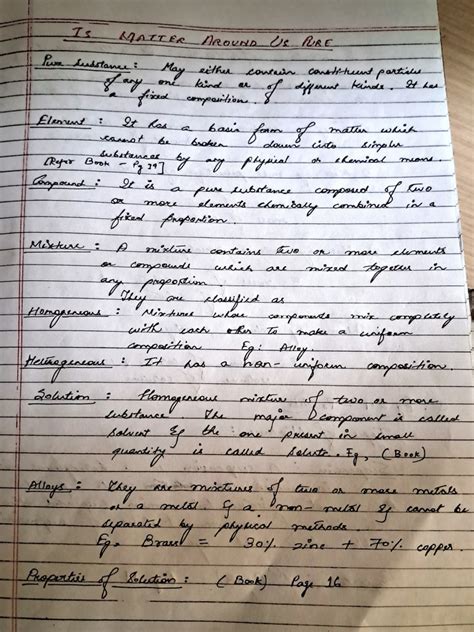 IS MATTER AROUND US PURE
Pure Substance : May either contain constituent particles
of any one kind or of different kinds. It has
a fixed composition.
Element : It has a basic form of matter which
cannot be broken down into simpler
substances by any physical or chemical means.
[Refer Book - Pg 39]
Compound : It is a pure substance composed of two
or more elements chemically combined in a
fixed proportion.
Mixture : A mixture contains two or more elements
or compounds which are mixed together in
any proportion.
They are classified as
Homogeneous : Mixtures whose components mix completely
with each other to make a uniform
composition Eg: Alloy.
Hetrogeneous : It has a non-uniform composition.
Solution : Homogeneous mixture of two or more
substance. The major component is called
solvent & the one present in small
quantity is called solute. Eg, (Book)
Alloys : They are mixtures of two or more metals
or a metal & a non-metal & cannot be
separated by physical methods.
Eg, Brass = 30% zinc + 70% copper.
Properties of Solution : (Book) Page 16